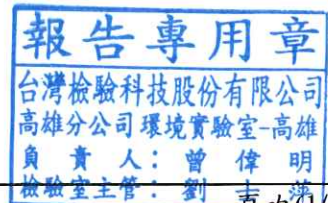 報告專用章
台灣檢驗科技股份有限公司
高雄分公司環境實驗室-高雄
負責人：曾偉明
檢驗室主管：劉